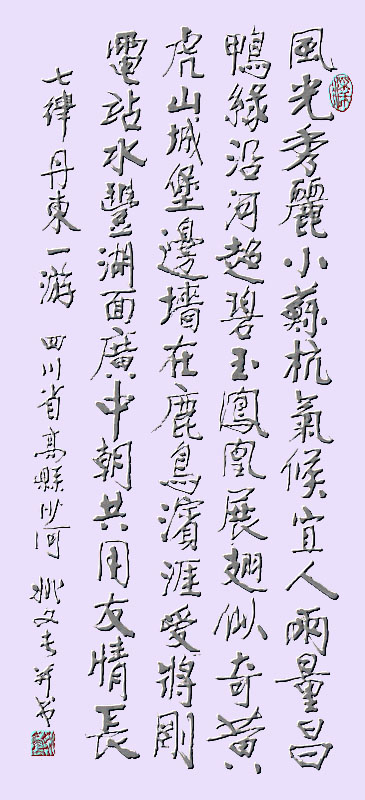 風光秀麗小蘇杭氣候宜人雨量昌
鴨綠沿河超碧玉鳳凰展翅似奇黃
虎山城堡邊墻在鹿鳥濱涯愛將剛
電站水豐湖面廣中朝共用友情長
七律 丹東一游 四川省高縣沙河 姚文长并书